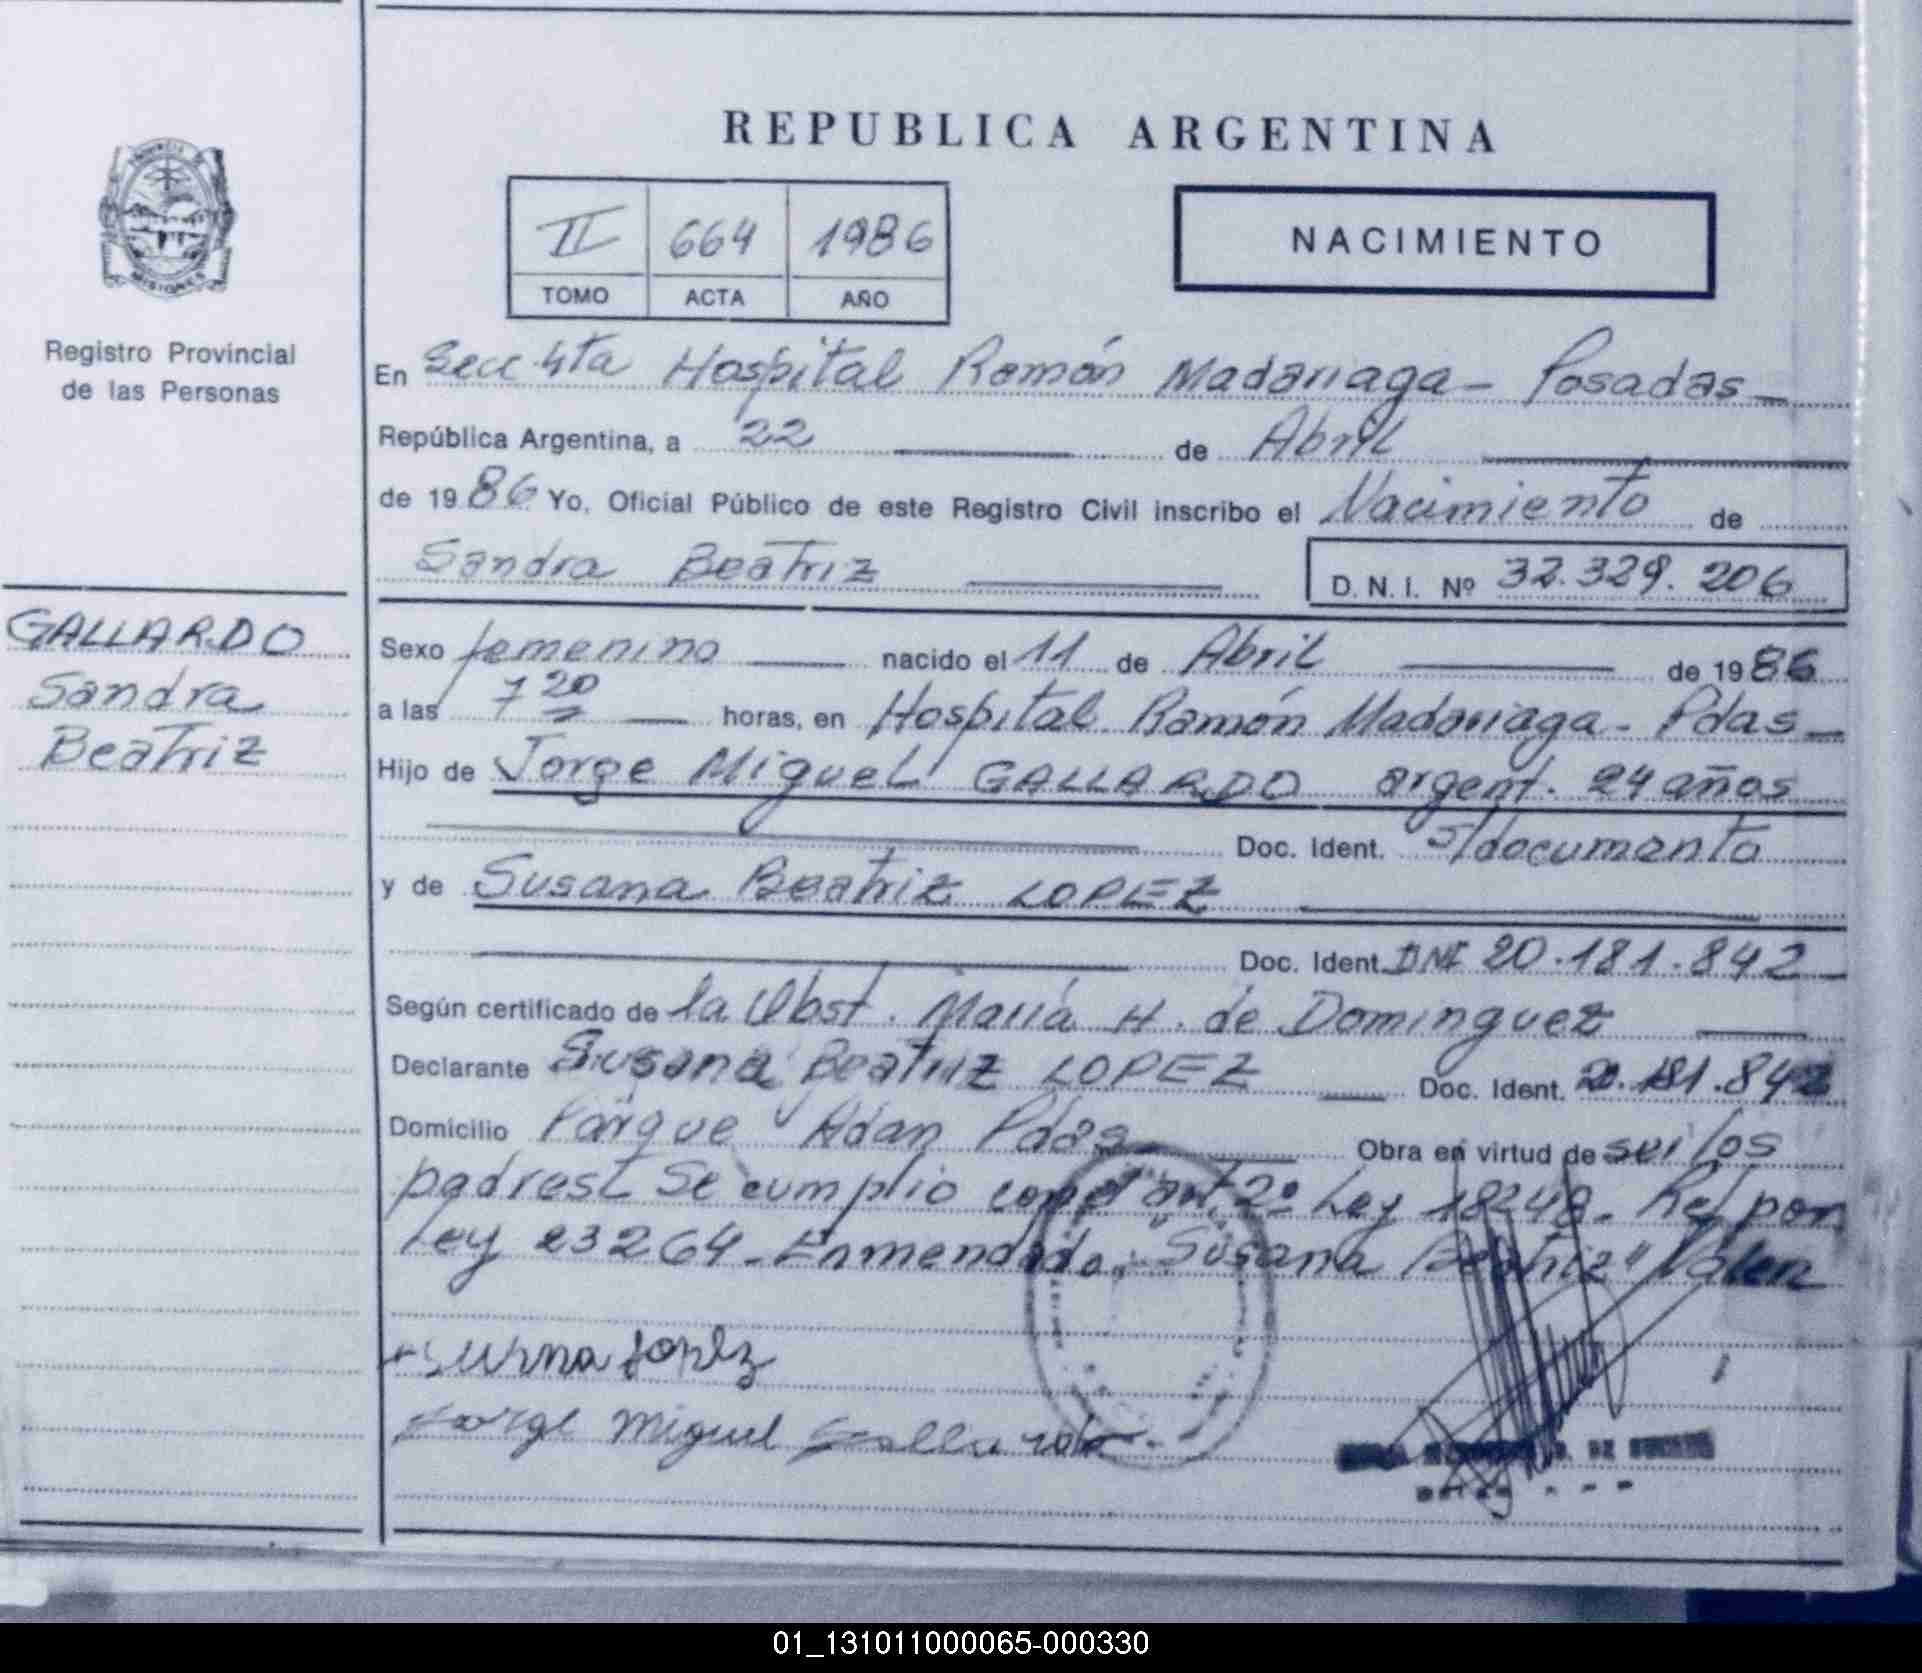 REPUBLICA ARGENTINA
II 664 1986
TOMO ACTA AÑO
NACIMIENTO
Registro Provincial
de las Personas
GALLARDO
Sandra
Beatriz
En Secc 4ta Hospital Ramón Madariaga - Posadas
República Argentina, a 22 de Abril
de 1986 Yo, Oficial Público de este Registro Civil inscribo el Nacimiento de
Sandra Beatriz D. N. I. Nº 32.329.206
Sexo femenino nacido el 11 de Abril de 1986
a las 7 20 horas, en Hospital Ramón Madariaga - Pdas
Hijo de Jorge Miguel GALLARDO argent. 24 años
Doc. Ident. s/documento
y de Susana Beatriz LOPEZ
Doc. Ident. DNI 20.181.842
Según certificado de la Obst. María H. de Dominguez
Declarante Susana Beatriz LOPEZ Doc. Ident. 20.181.842
Domicilio Parque Adan Pdas Obra en virtud de ser los
padres Se cumplio con el art 2º Ley 18248 - Ref por
Ley 23264 - Enmendado: "Susana Beatriz" Valen
Susana Lopez
Jorge Miguel Gallardo
01_131011000065-000330